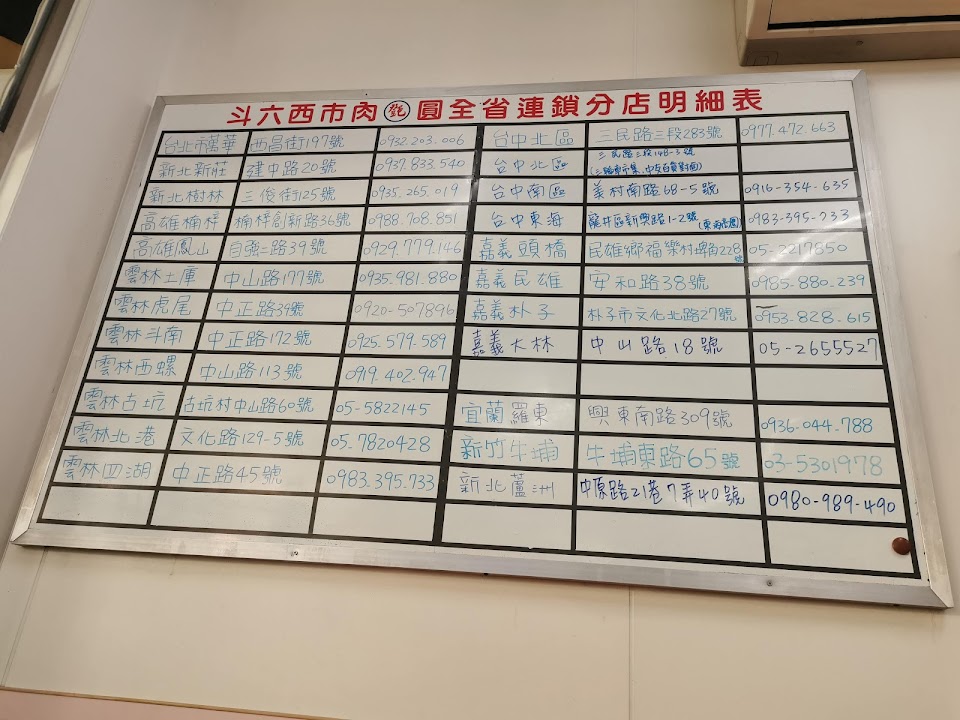 斗六西市肉㽃圓全省連鎖分店明細表
台北市萬華 西昌街197號 0932.203.006
新北新莊 建中路20號 0937.833.540
新北樹林 三俊街125號 0935.265.019
高雄楠梓 楠梓創新路36號 0988.708.851
高雄鳳山 自強一路39號 0929.779.146
雲林土庫 中山路177號 0935.981.880
雲林虎尾 中正路39號 0920-507896
雲林斗南 中正路172號 0925.579.589
雲林西螺 中山路113號 0919.402.947
雲林古坑 古坑村中山路60號 05-5822145
雲林北港 文化路129-5號 05.7820428
雲林四湖 中正路45號 0983.395.733
台中北區 三民路三段283號 0977.472.663
台中北區 三民路三段148-3號
台中南區 美村南路68-5號 0916-354-635
台中東海 龍井區新興路1-2號(東海商圈) 0983-395-233
嘉義頭橋 民雄鄉福樂村埤角228號 05-2217850
嘉義民雄 安和路38號 0985-880-239
嘉義朴子 朴子市文化北路27號 0953-828-615
嘉義大林 中山路18號 05-2655527
宜蘭羅東 興東南路309號 0936-044-788
新竹牛埔 牛埔東路65號 03-5301978
新北蘆洲 中原路21巷7弄40號 0980-989-490